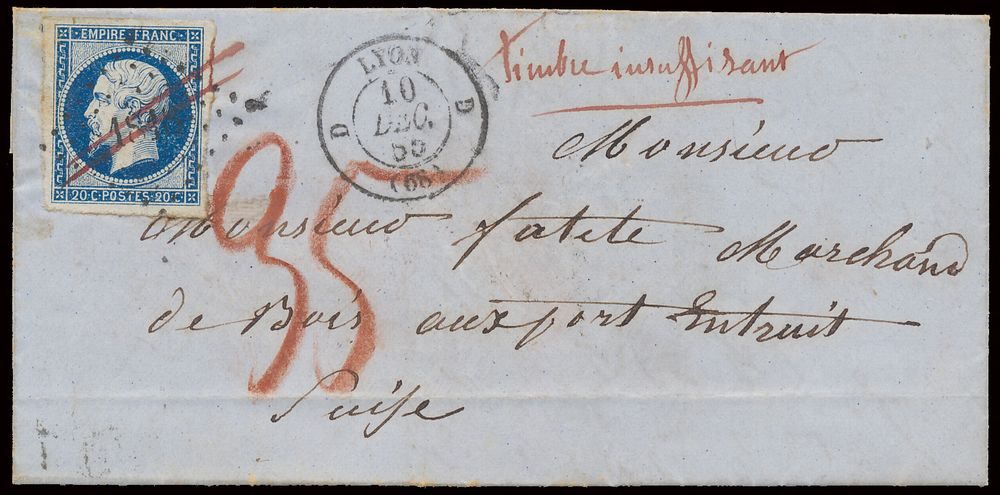 EMPIRE FRANC
20·C·POSTES·20·C
LYON
10
DEC.
55
(68)
D
D
timbre insuffisant
95
Monsieur
Monsieur fatete Marchand
de Bois aux port Entruit
Suise